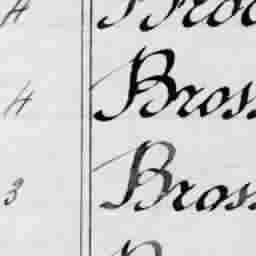 4 Broo
4 Bross
3 Bross